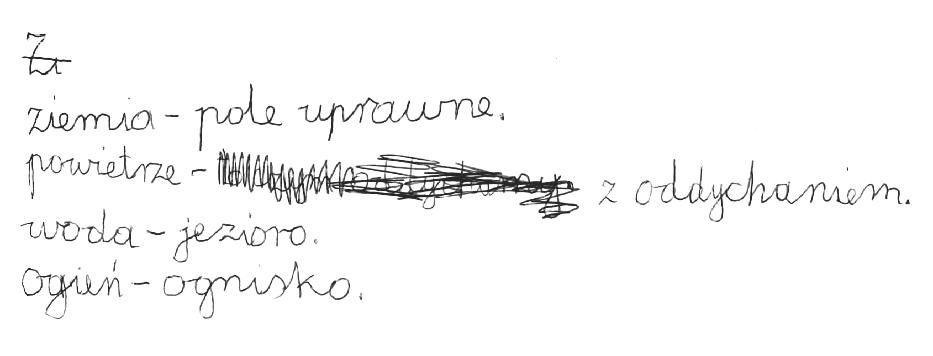 ziemia - pole uprawne.
powietrze - z oddychaniem.
woda - jezioro.
ogień - ognisko.